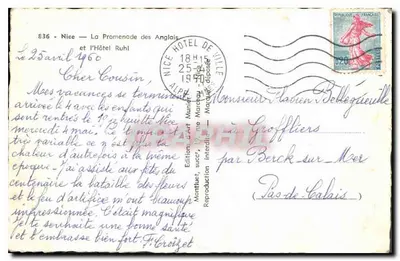 836 - Nice — La Promenade des Anglais
et l'Hôtel Ruhl
Le 25 avril 1960
Cher Cousin,
Mes vacances se terminent
arrivée le 4 avec les enfants qui
sont rentrés le
mercredi 4 mai. Le temps est
très variable ce n'est plus la
chaleur d'autrefois à la même
époque. J'ai assisté aux fêtes du
centenaire la bataille des fleurs
et le feu d'artifice m'ont beaucoup
impressionnée. C'était magnifique
Je te souhaite une bonne santé
et t'embrasse bien fort. F. Croizet
NICE HOTEL DE VILLE
18H15
25-4
1960
Reproduction interdite
Monsieur Flavien Bellegueulle
Groffliers
par Berck-sur-Mer
Pas-de-Calais)